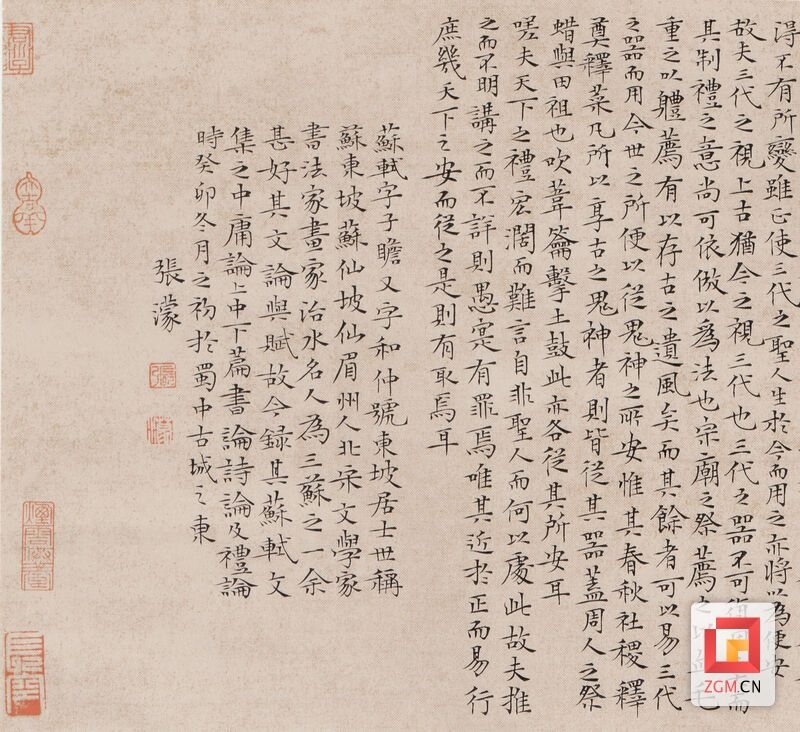 得不有所變雖正使三代之聖人生於今而用之亦將以為便安
故夫三代之視上古猶今之視三代也三代之器不可復用
其制禮之意尚可依倣以為法也宗廟之祭薦之以血毛
重之以體薦有以存古之遺風矣而其餘者可以易三代
之器而用今世之所便以從鬼神之所安惟其春秋社稷釋
奠釋菜凡所以享古之鬼神者則皆從其器蓋周人之祭
蜡與田祖也吹葦籥擊土鼓此亦各從其所安耳
嗟夫天下之禮宏闊而難言自非聖人而何以處此故夫推
之而不明講之而不詳則愚寔有罪焉唯其近於正而易行
庶幾天下之安而從之是則有取焉耳
蘇軾字子瞻又字和仲號東坡居士世稱
蘇東坡蘇仙坡仙眉州人北宋文學家
書法家畫家治水名人為三蘇之一余
甚好其文論與賦故今録其蘇軾文
集之中庸論上中下篇書論詩論及禮論
時癸卯冬月之初於蜀中古城之東
張濛
張
濛
ZGM.CN